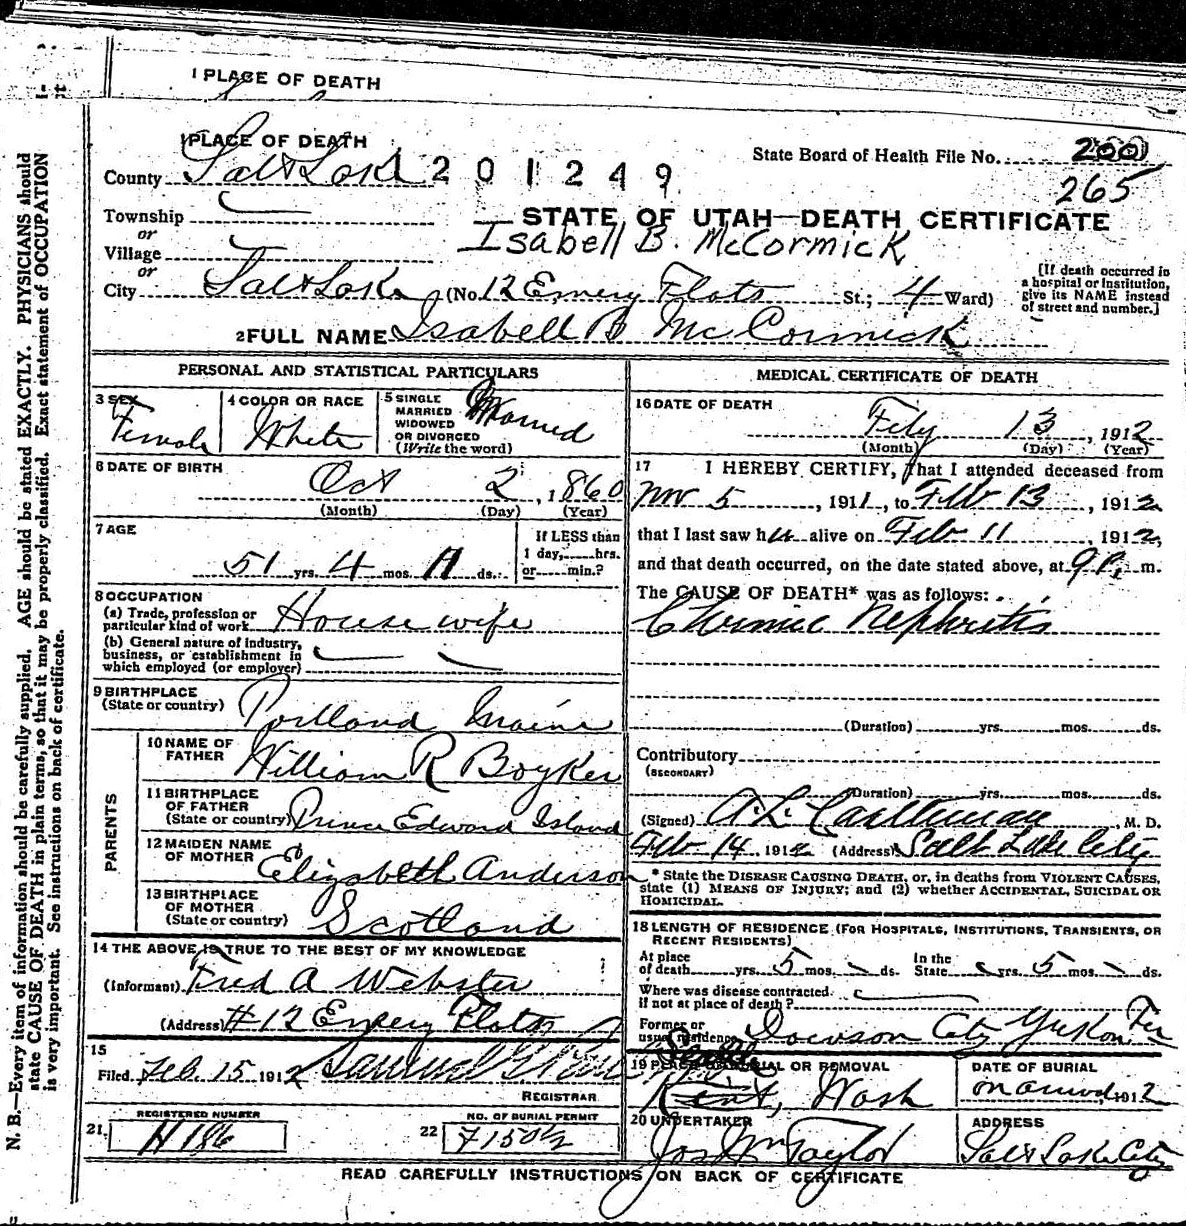 1 PLACE OF DEATH
1 PLACE OF DEATH
County Salt Lake 201249
State Board of Health File No. 200
265
Township
or
Village
or
STATE OF UTAH—DEATH CERTIFICATE
Isabell B. McCormick
City Salt Lake (No. 12 Emery Flats St.; 4 Ward)
[If death occurred in
a hospital or institution,
give its NAME instead
of street and number.]
2 FULL NAME Isabell B McCormick
PERSONAL AND STATISTICAL PARTICULARS
3 SEX
Female
4 COLOR OR RACE
White
5 SINGLE
MARRIED
WIDOWED
OR DIVORCED
(Write the word)
Married
6 DATE OF BIRTH
Oct 2, 1860
(Month) (Day) (Year)
7 AGE
51 yrs. 4 mos. 11 ds.
If LESS than
1 day, hrs.
or min.?
8 OCCUPATION
(a) Trade, profession or
particular kind of work House wife
(b) General nature of industry,
business, or establishment in
which employed (or employer)
9 BIRTHPLACE
(State or country) Portland Maine
PARENTS
10 NAME OF
FATHER William R Boyker
11 BIRTHPLACE
OF FATHER
(State or country) Prince Edward Island
12 MAIDEN NAME
OF MOTHER Elizabeth Anderson
13 BIRTHPLACE
OF MOTHER
(State or country) Scotland
14 THE ABOVE IS TRUE TO THE BEST OF MY KNOWLEDGE
(Informant) Fred A Webster
(Address) #12 Emery Flats
15
Filed Feb. 15 1912 Samuel G
REGISTRAR
REGISTERED NUMBER
21. H 186
NO. OF BURIAL PERMIT
22 7150½
MEDICAL CERTIFICATE OF DEATH
16 DATE OF DEATH
Feby 13, 1912
(Month) (Day) (Year)
17 I HEREBY CERTIFY, That I attended deceased from
Nov 5, 1911, to Feb 13, 1912
that I last saw her alive on Feb 11, 1912,
and that death occurred, on the date stated above, at 9 P. m.
The CAUSE OF DEATH* was as follows:
Chronic Nephritis
(Duration) yrs. mos. ds.
Contributory
(SECONDARY)
(Duration) yrs. mos. ds.
(Signed) A. L., M. D.
Feb 14, 1912 (Address) Salt Lake City
* State the DISEASE CAUSING DEATH, or, in deaths from VIOLENT CAUSES,
state (1) MEANS OF INJURY; and (2) whether ACCIDENTAL, SUICIDAL OR
HOMICIDAL.
18 LENGTH OF RESIDENCE (FOR HOSPITALS, INSTITUTIONS, TRANSIENTS, OR
RECENT RESIDENTS)
At place
of death yrs. 5 mos. ds.
In the
State yrs. 5 mos. ds.
Where was disease contracted
if not at place of death?
Former or
usual residence Dawson City Yukon Ter
19 PLACE OF BURIAL OR REMOVAL
Seattle
Kent, Wash
DATE OF BURIAL
1912
20 UNDERTAKER
Jos Wm Taylor
ADDRESS
Salt Lake City
READ CAREFULLY INSTRUCTIONS ON BACK OF CERTIFICATE
N. B.—Every item of information should be carefully supplied. AGE should be stated EXACTLY. PHYSICIANS should
state CAUSE OF DEATH in plain terms, so that it may be properly classified. Exact statement of OCCUPATION
is very important. See instructions on back of certificate.